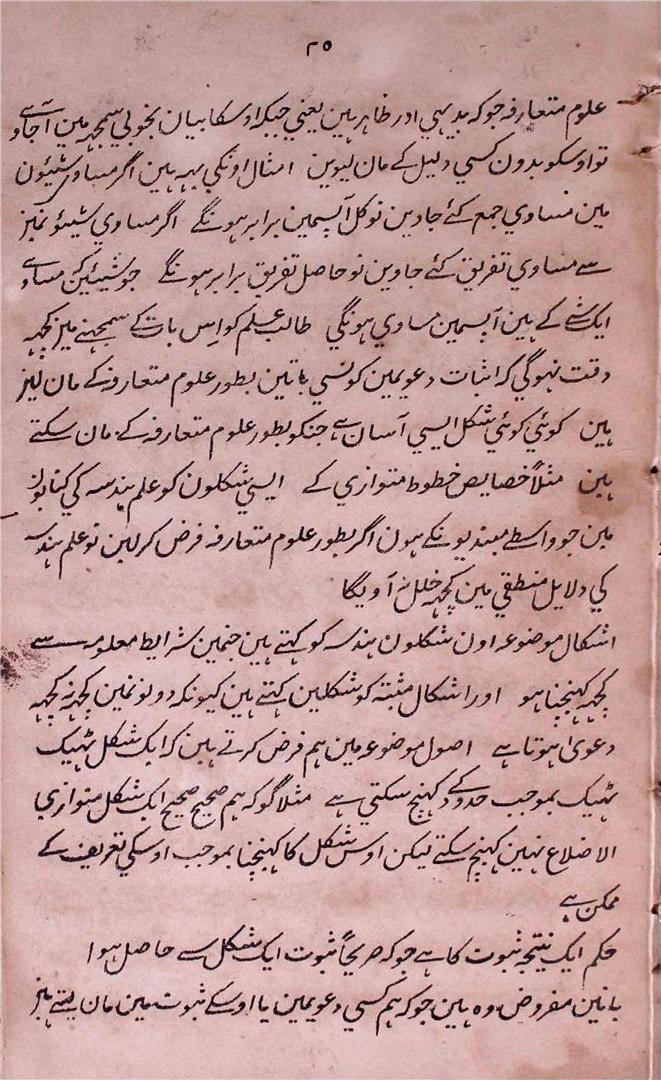 ۲۵
علوم متعارفہ جوکہ بدیہی اور ظاہر ہین یعنی جبکہ اوسکا بیان بخوبی سمجہہ مین آجاوے
تو اوسکو بدون کسی دلیل کے مان لیوین امثال اونکی یہہ ہین اگر مساوی شیئون
مین مساوی جمع کئے جاوین تو کل آپسمین برابر ہونگے اگر مساوی شیئونمین
سے مساوی تفریق کئے جاوین تو حاصل تفریق برابر ہونگے جو شیئین کہ مساوی
ایک شے کے ہین آپسمین مساوی ہونگی طالب علم کو اِس بات کے سمجہنے مین کچہہ
دقت نہوگی کہ اثبات دعویمین کونسی باتین بطور علوم متعارفہ کے مان لین
ہین کوئی کوئی شکل ایسی آسان ہے جنکو بطور علوم متعارفہ کے مان سکتے
ہین مثلاً خصایص خطوط متوازی کے ایسی شکلون کو علم ہندسہ کی کتابون
مین جو واسطے مبتدیونکے ہون اگر بطور علوم متعارفہ فرض کرلین تو علم ہندسہ
کی دلایل منطقی مین کچہہ خلل نہ آویگا
اشکال موضوعہ اون شکلون ہندسہ کو کہتے ہین جنمین شرایط معلومہ سے
کچہہ کہنچنا ہو اور اشکال مثبتہ کو شکلین کہتے ہین کیونکہ دونونمین کچہہ نہ کچہہ
دعویٰ ہوتا ہے اصول موضوعہ مین ہم فرض کرتے ہین کہ ایک شکل ٹہیک
ٹہیک بموجب حدود کے کہنچ سکتی ہے مثلاً گو کہ ہم صحیح صحیح ایک شکل متوازی
الاضلاع نہین کہنچ سکتے لیکن اوس شکل کا کہنچنا بموجب اوسکی تعریف کے
ممکن ہے
حکم ایک نتیجہ ثبوت کا ہے جوکہ صریحاً ثبوت ایک شکل سے حاصل ہوا
باتین مفروض وہ ہین جوکہ ہم کسی دعویمین یا اوسکے ثبوت مین مان لیتے ہین